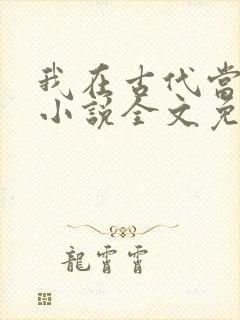 我在古代当
小说全文免
龍霄霄